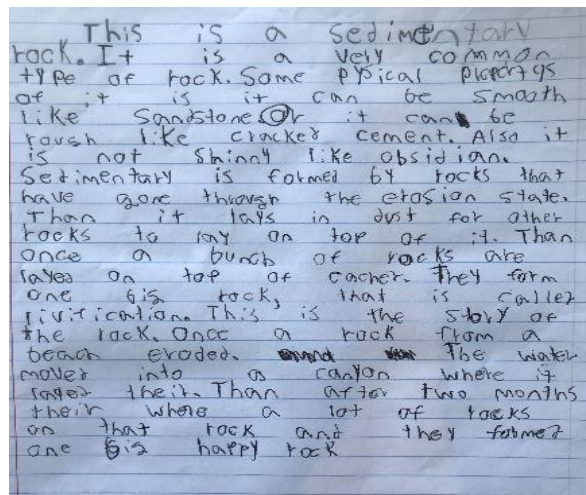 This is a Sedimentary
rock. It is a very common
type of rock. Some pysical propertys
of it is it can be smooth
like Sandstone. Or it can be
rough like cracked cement. Also it
is not shinny like obsidian.
Sedimentary is formed by rocks that
have gone through the erosion state.
Than it lays in dust for other
rocks to lay on top of it. Than
once a bunch of rocks are
layed on top of eacher. They form
one big rock, that is called
livitication. This is the story of
the rock. Once a rock from a
beach eroded. The water
moved into a canyon where it
layed their. Than after two months
their where a lot of rocks
on that rock and they formed
one big happy rock